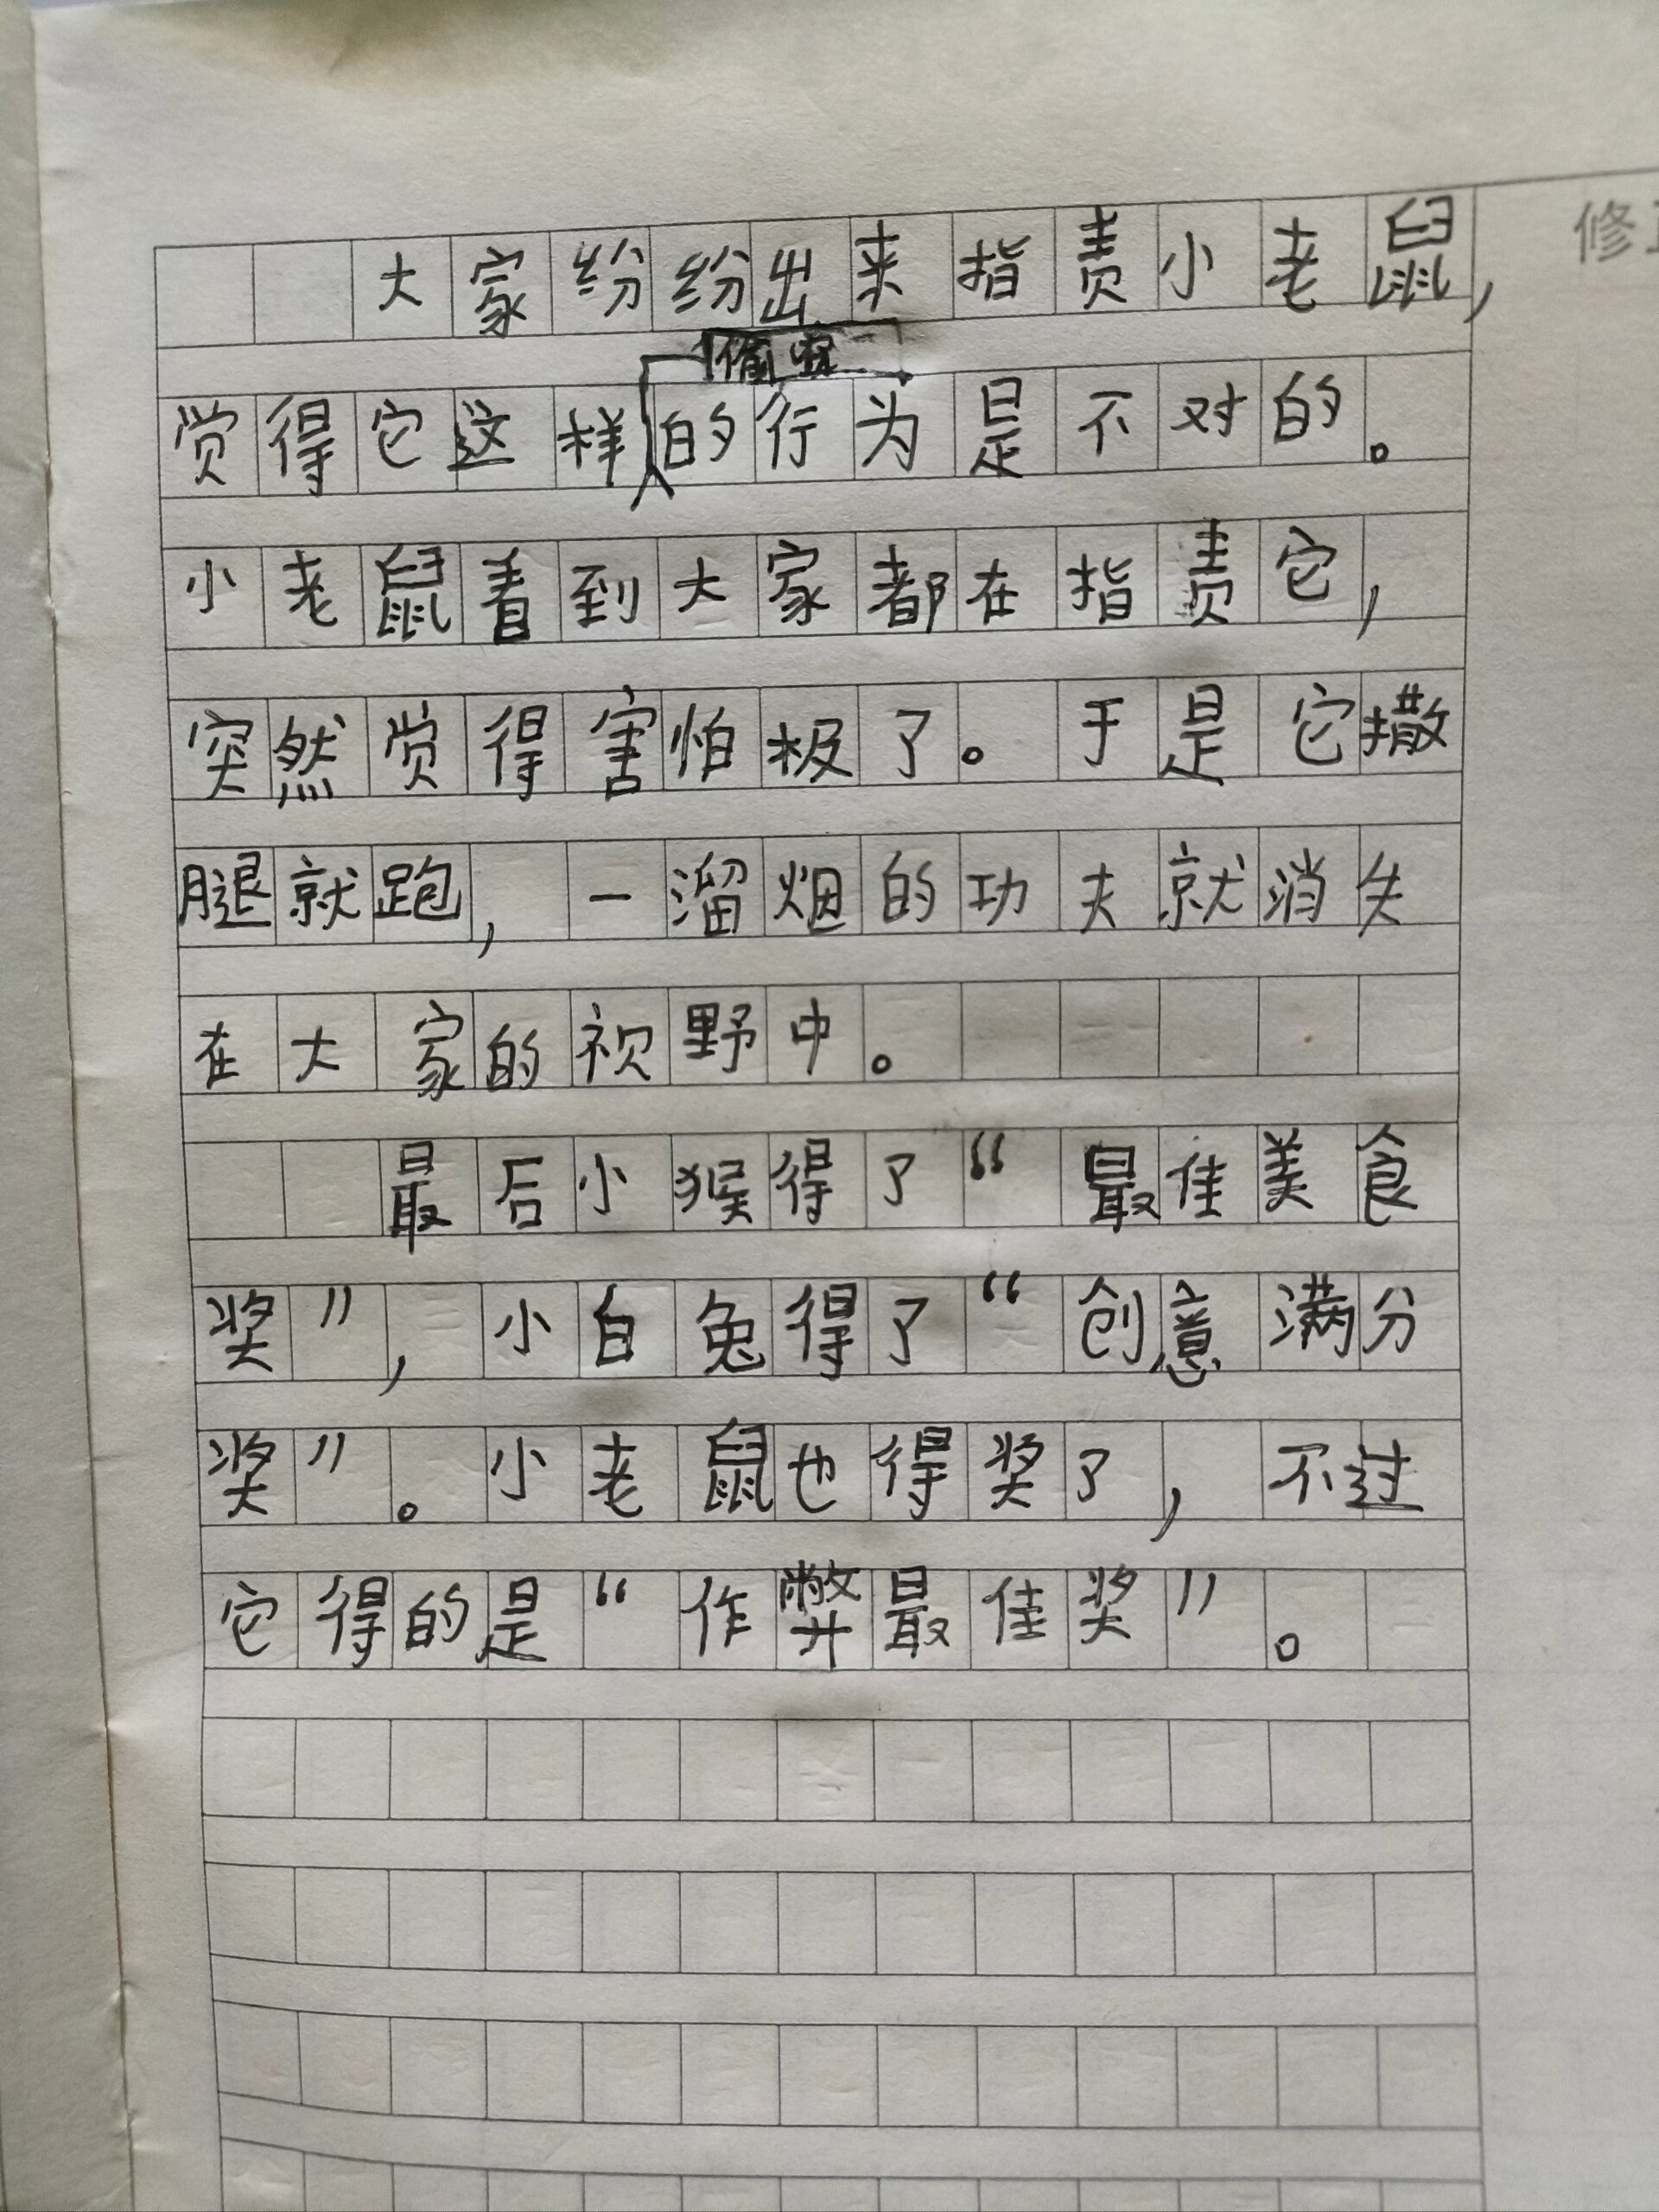 修
大家纷纷出来指责小老鼠，
偷
觉得它这样的行为是不对的。
小老鼠看到大家都在指责它，
突然觉得害怕极了。于是它撒
腿就跑，一溜烟的功夫就消失
在大家的视野中。
最后小猴得了“最佳美食
奖”，小白兔得了“创意满分
奖”。小老鼠也得奖了，不过
它得的是“作弊最佳奖”。